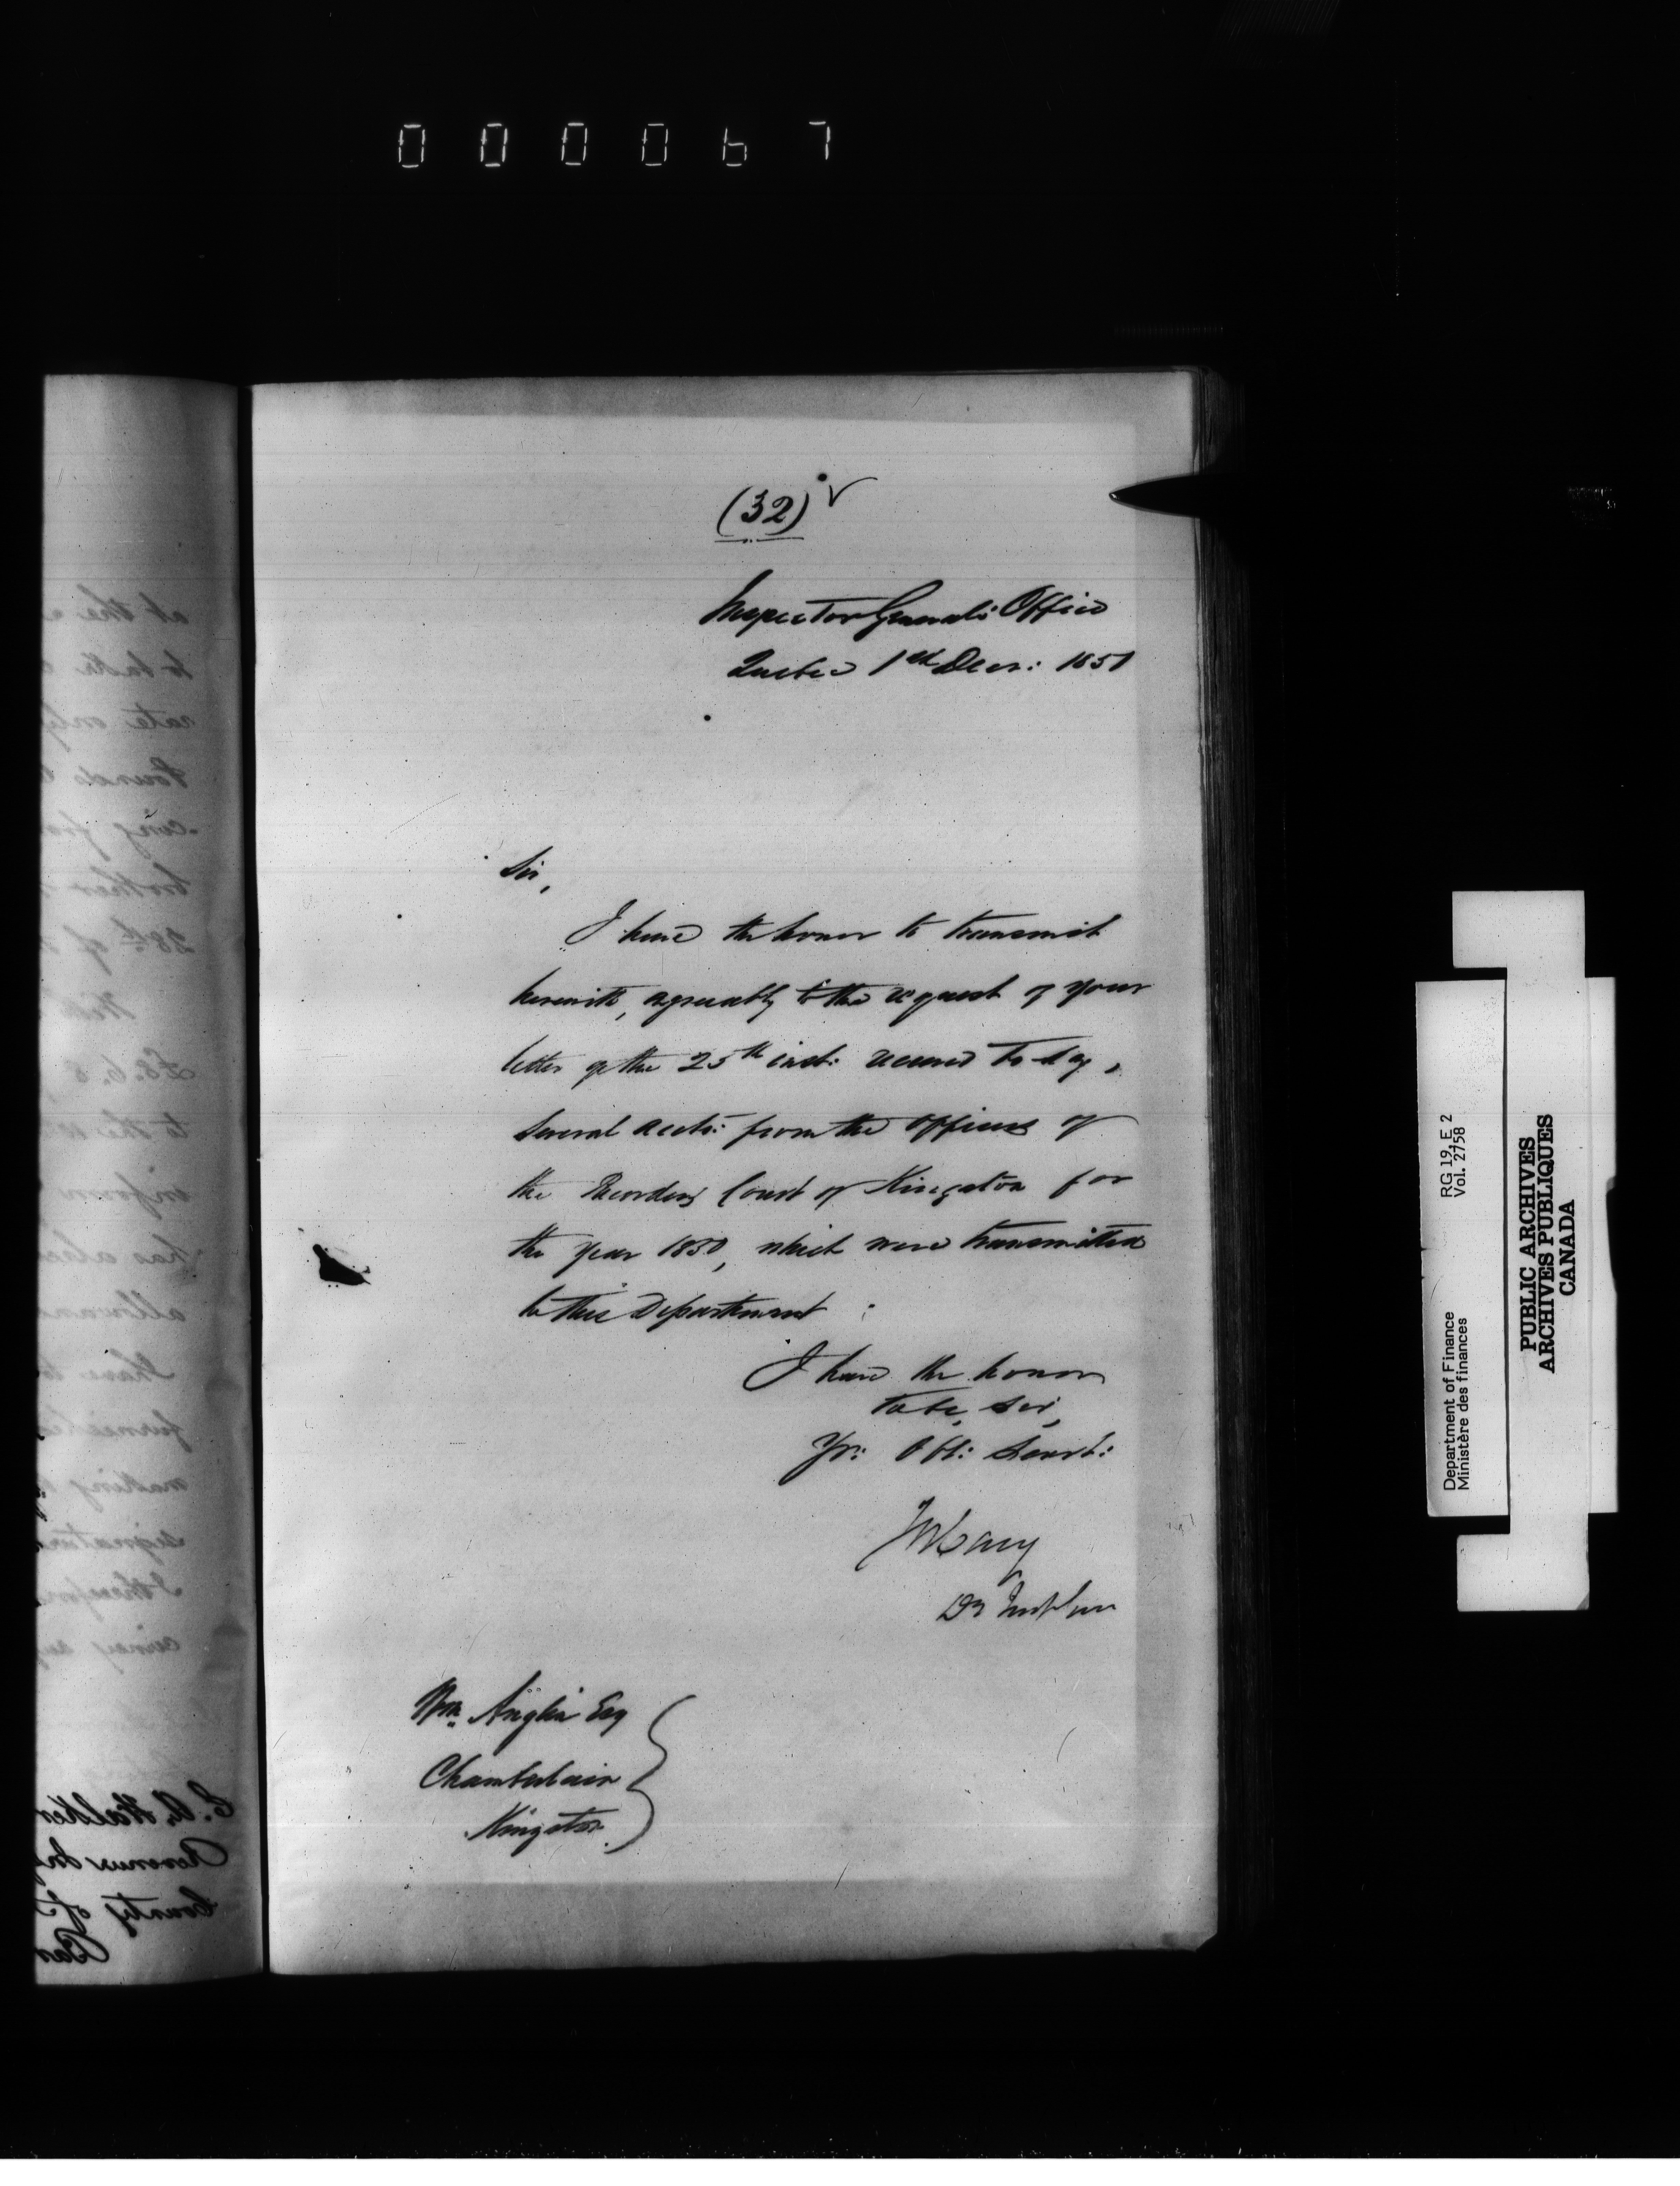 000067
(32) ✓
Inspector General's Office
Quebec 1st Decr: 1851
Sir,
I have the honor to transmit
herewith, agreeably to the request of your
letter of the 25th inst: received to-day,
several accts: from the Officers of
the Recorders Court of Kingston for
the year 1850, which were transmitted
to this Department:
I have the honor
to be, Sir,
Yr: Obt: Servt:
Wm. Anglin Esq
Chamberlain
Kingston
RG 19, E 2
Vol. 2758
Department of Finance
Ministère des finances
PUBLIC ARCHIVES
ARCHIVES PUBLIQUES
CANADA